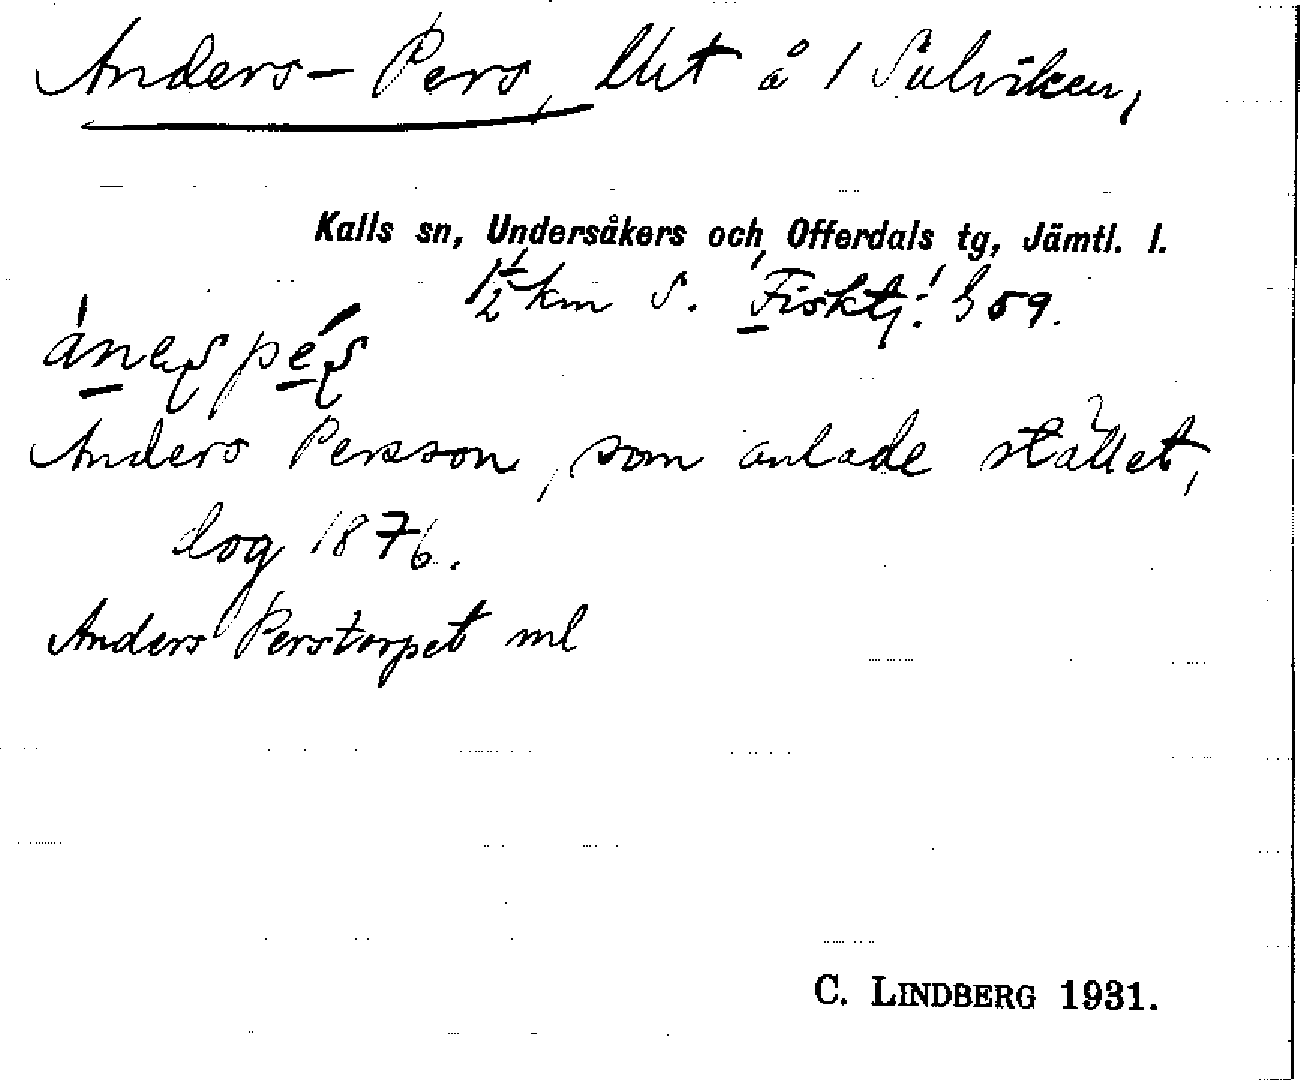 Anders-Pers, lht å 1 Sulviken,
Kalls sn, Undersåkers och Offerdals tg, Jämtl. l.
1½ km S. Fisktj:
ánes pés
Anders Persson, som anlade stället,
dog 1876.
Anders Perstorpet ml
C. LINDBERG 1931.